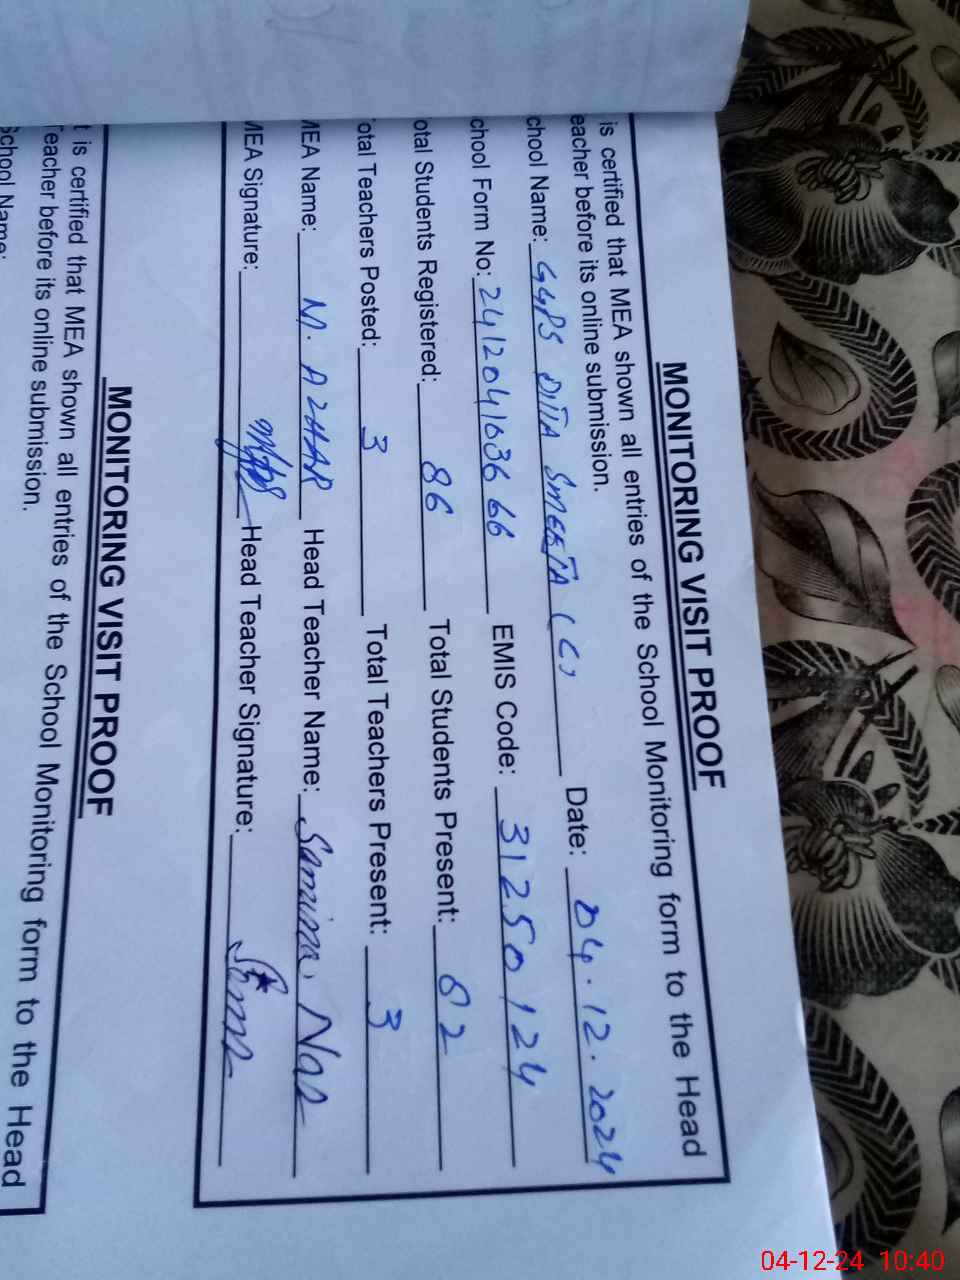 MONITORING VISIT PROOF
is certified that MEA shown all entries of the School Monitoring form to the Head
eacher before its online submission.
chool Name: GGPS DITTA Date: 04.12.2024
chool Form No: 2412041636 66 EMIS Code: 31250124
otal Students Registered: 86 Total Students Present: 62
otal Teachers Posted: 3 Total Teachers Present: 3
MEA Name: M. AZHAR Head Teacher Name: Samina Naz
MEA Signature: Head Teacher Signature:
MONITORING VISIT PROOF
t is certified that MEA shown all entries of the School Monitoring form to the Head
Teacher before its online submission.
School Name:
04-12-24 10:40